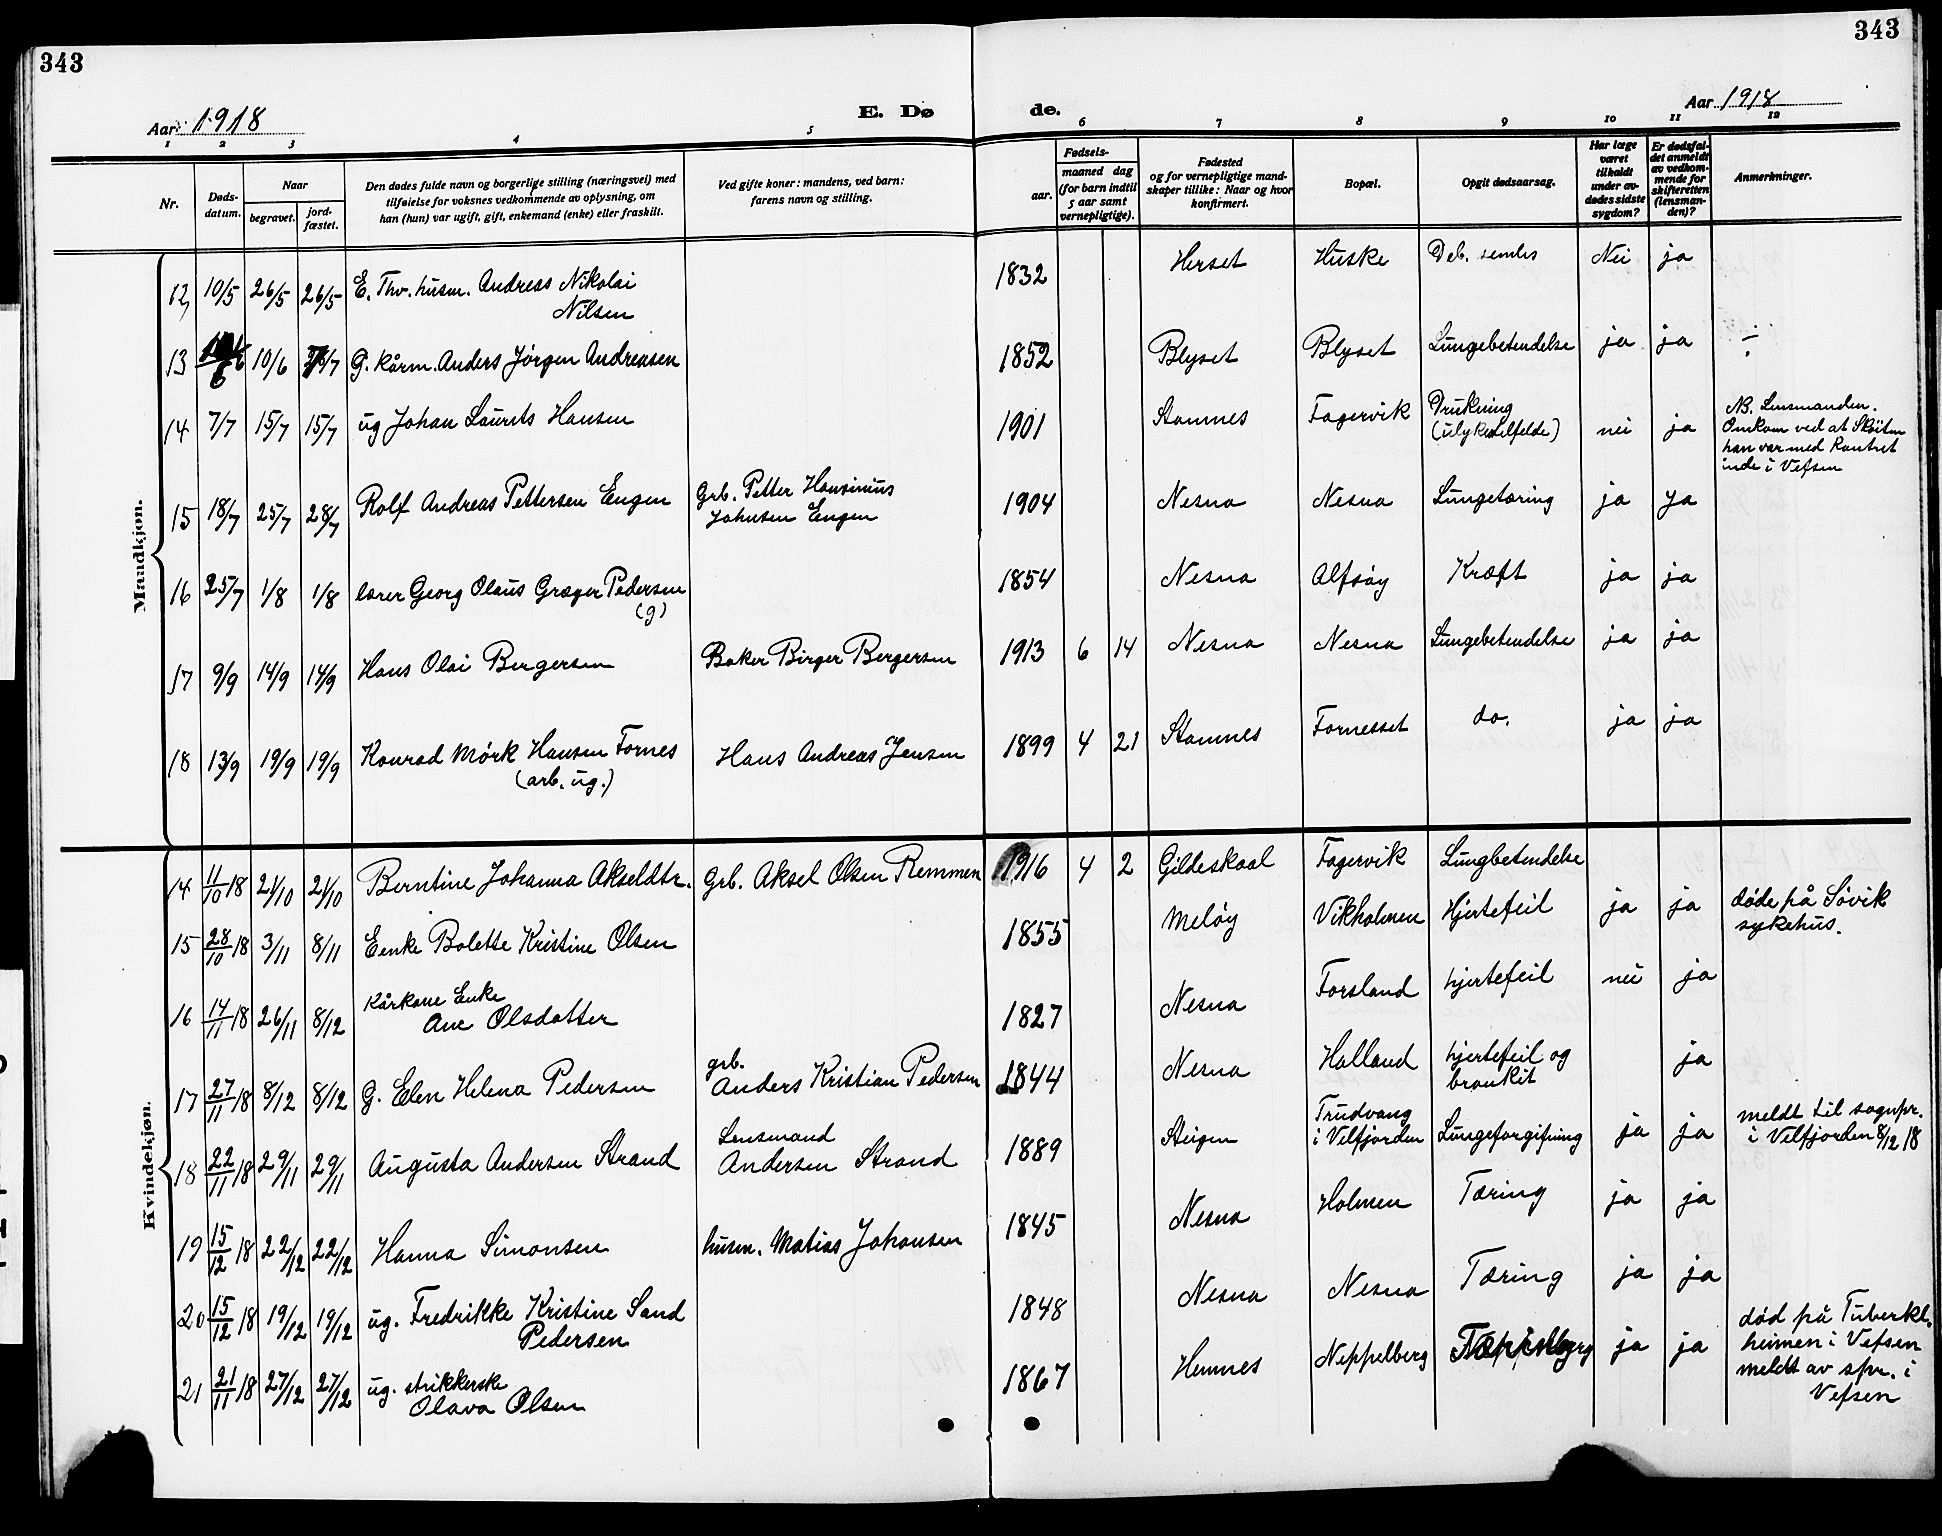 343
343
Aar 1918
E. Dø
de.
Aar 1918
1 2 3 4 5 6 7 8 9 10 11 12
Nr.
Døds-
datum.
Naar
begravet.
jord-
fæstet.
Den dødes fulde navn og borgerlige stilling (næringsvei) med
tilføielse for voksnes vedkommende av oplysning, om
han (hun) var ugift, gift, enkemand (enke) eller fraskilt.
Ved gifte koner: mandens, ved barn:
farens navn og stilling.
Fødsels-
aar.
maaned dag
(for barn indtil
5 aar samt
vernepligtige).
Fødested
og for vernepligtige mand-
skaper tillike: Naar og hvor
konfirmert.
Bopæl.
Opgit dødsaarsag.
Har læge
været
tilkaldt
under av-
dødes sidste
sygdom?
Er dødsfal-
det anmeldt
av vedkom-
mende for
skifteretten
(lensman-
den)?
Anmerkninger.
Mandkjøn.
12, 10/5 26/5 26/5 E. Thv. husm. Andreas Nikolai
Nilsen
1832 Herset Huske Deb. senles Nei ja
13 10/6 G. kårm. Anders Jørgen Andreasen 1852 Blyset Blyset Lungebetendelse ja ja ÷
14 7/7 15/7 15/7 ug Johan Laurits Hansen 1901 Stamnes Fagervik Drukning
(ulyketilfelde) nei ja
NB. Lensmanden.
Omkom ved at Skøiten
han var med kantret
inde i Vefsen
15 18/7 25/7 28/7 Rolf Andreas Pettersen Engen Grb. Petter Hansinius
Johnsen Engen
1904 Nesna Nesna Lungetæring ja ja
16 25/7 1/8 1/8 lærer Georg Olaus Græger Pedersen
(g)
1854 Nesna Alfsøy Kræft ja ja
17 9/9 14/9 14/9 Hans Olai Bergersen Baker Birger Bergersen 1913 6 14 Nesna Nesna Lungebetendelse ja ja
18 13/9 19/9 19/9 Konrad Mørk Hansen Fornes
(arb. ug.)
Hans Andreas Jensen 1899 4 21 Stamnes Fornesset do. ja ja
Kvindekjøn.
14 11/10 18 21/10 21/10 Berntine Johanna Akseldtr. Grb. Aksel Olsen Remmen 1916 4 2 Gildeskaal Fagervik Lungbetendelse
15 28/10 18 3/11 8/11 Eenke Bolette Kristine Olsen 1855 Meløy Vikholmen Hjertefeil ja ja døde på Søvik
sykehus.
16 14/11 18 26/11 8/12 Kårkone Enke
Ane Olsdatter
1827 Nesna Forsland hjertefeil nei ja
17 27/11 18 8/12 8/12 G. Elen Helena Pedersen grb.
Anders Kristian Pedersen
1844 Nesna Halland hjertefeil og
bronkit
ja
18 22/11 18 29/11 29/11 Augusta Andersen Strand Lensmand
Andersen Strand
1889 Steigen Trudvang
i Velfjorden Lungeforgifning ja ja
meldt til sognpr.
i Velfjorden 8/12 18
19 15/12 18 22/12 22/12 Hanna Simonsen husm. Matias Johansen 1845 Nesna Holmen Tæring ja ja
20 15/12 18 19/12 19/12 ug. Fredrikke Kristine Sand
Pedersen
1848 Nesna Nesna Tæring ja ja
21 21/11 18 27/12 27/12 ug. strikkerske
Olava Olsen
1867 Hemnes Neppelberg ja ja
død på Tuberkl.
heimen i Vefsen
meldt av spr. i
Vefsen